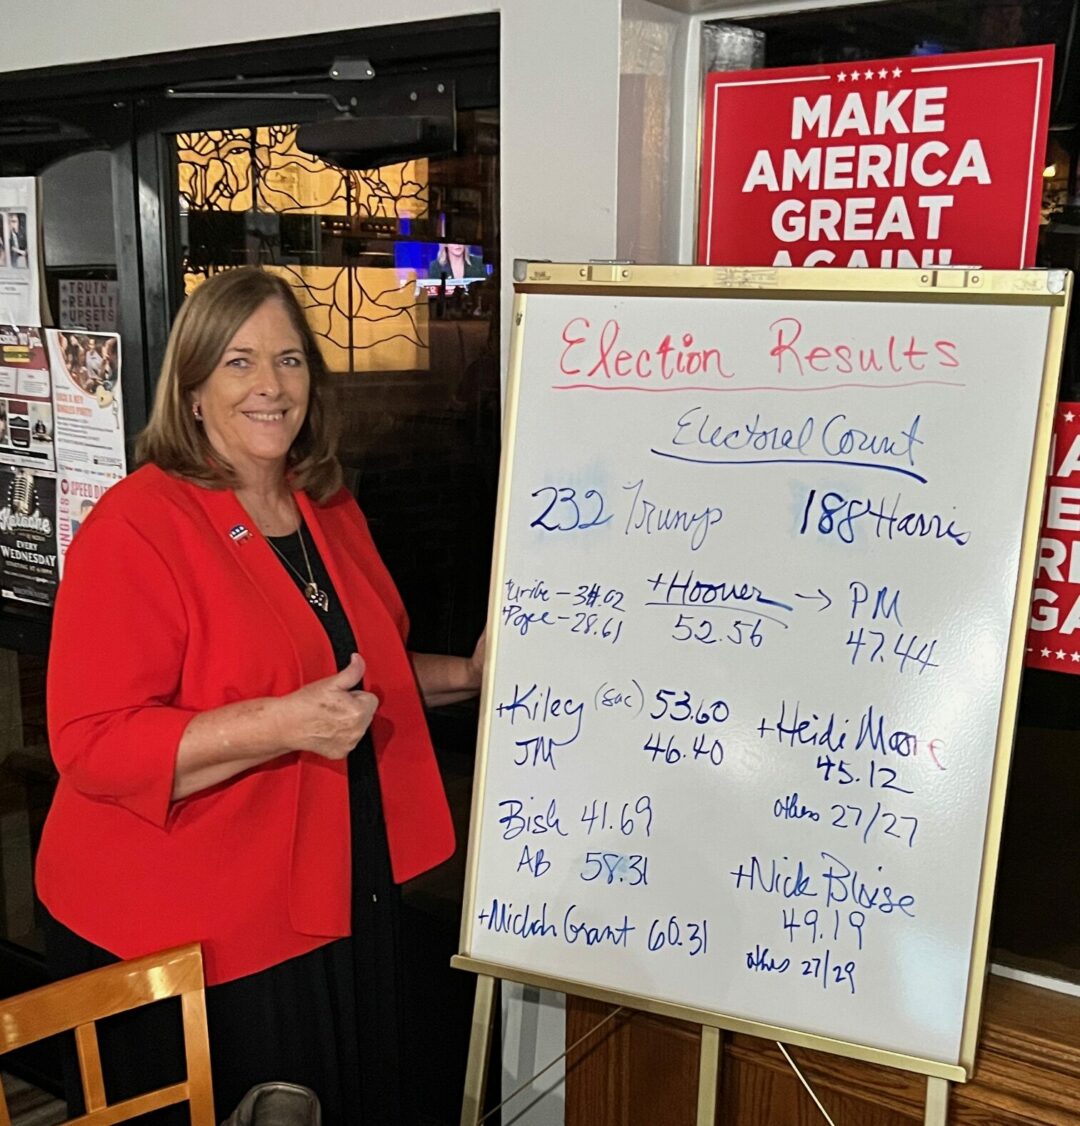 MAKE
AMERICA
GREAT
AGAIN!
Election Results
Electoral Count
232 Trump
188 Harris
Uribe - 34.02
Page - 28.61
+Hoover → PM
52.56
47.44
+Kiley (Sac) 53.60
JM 46.40
+Heidi Moore
45.12
others 27/27
Bish 41.69
AB 58.31
+Nick Bloise
49.19
others 27/29
+Michah Grant 60.31
TRUTH
REALLY
UPSETS
SPEED DAT
SINGLES
Karaoke
EVERY
WEDNESDAY